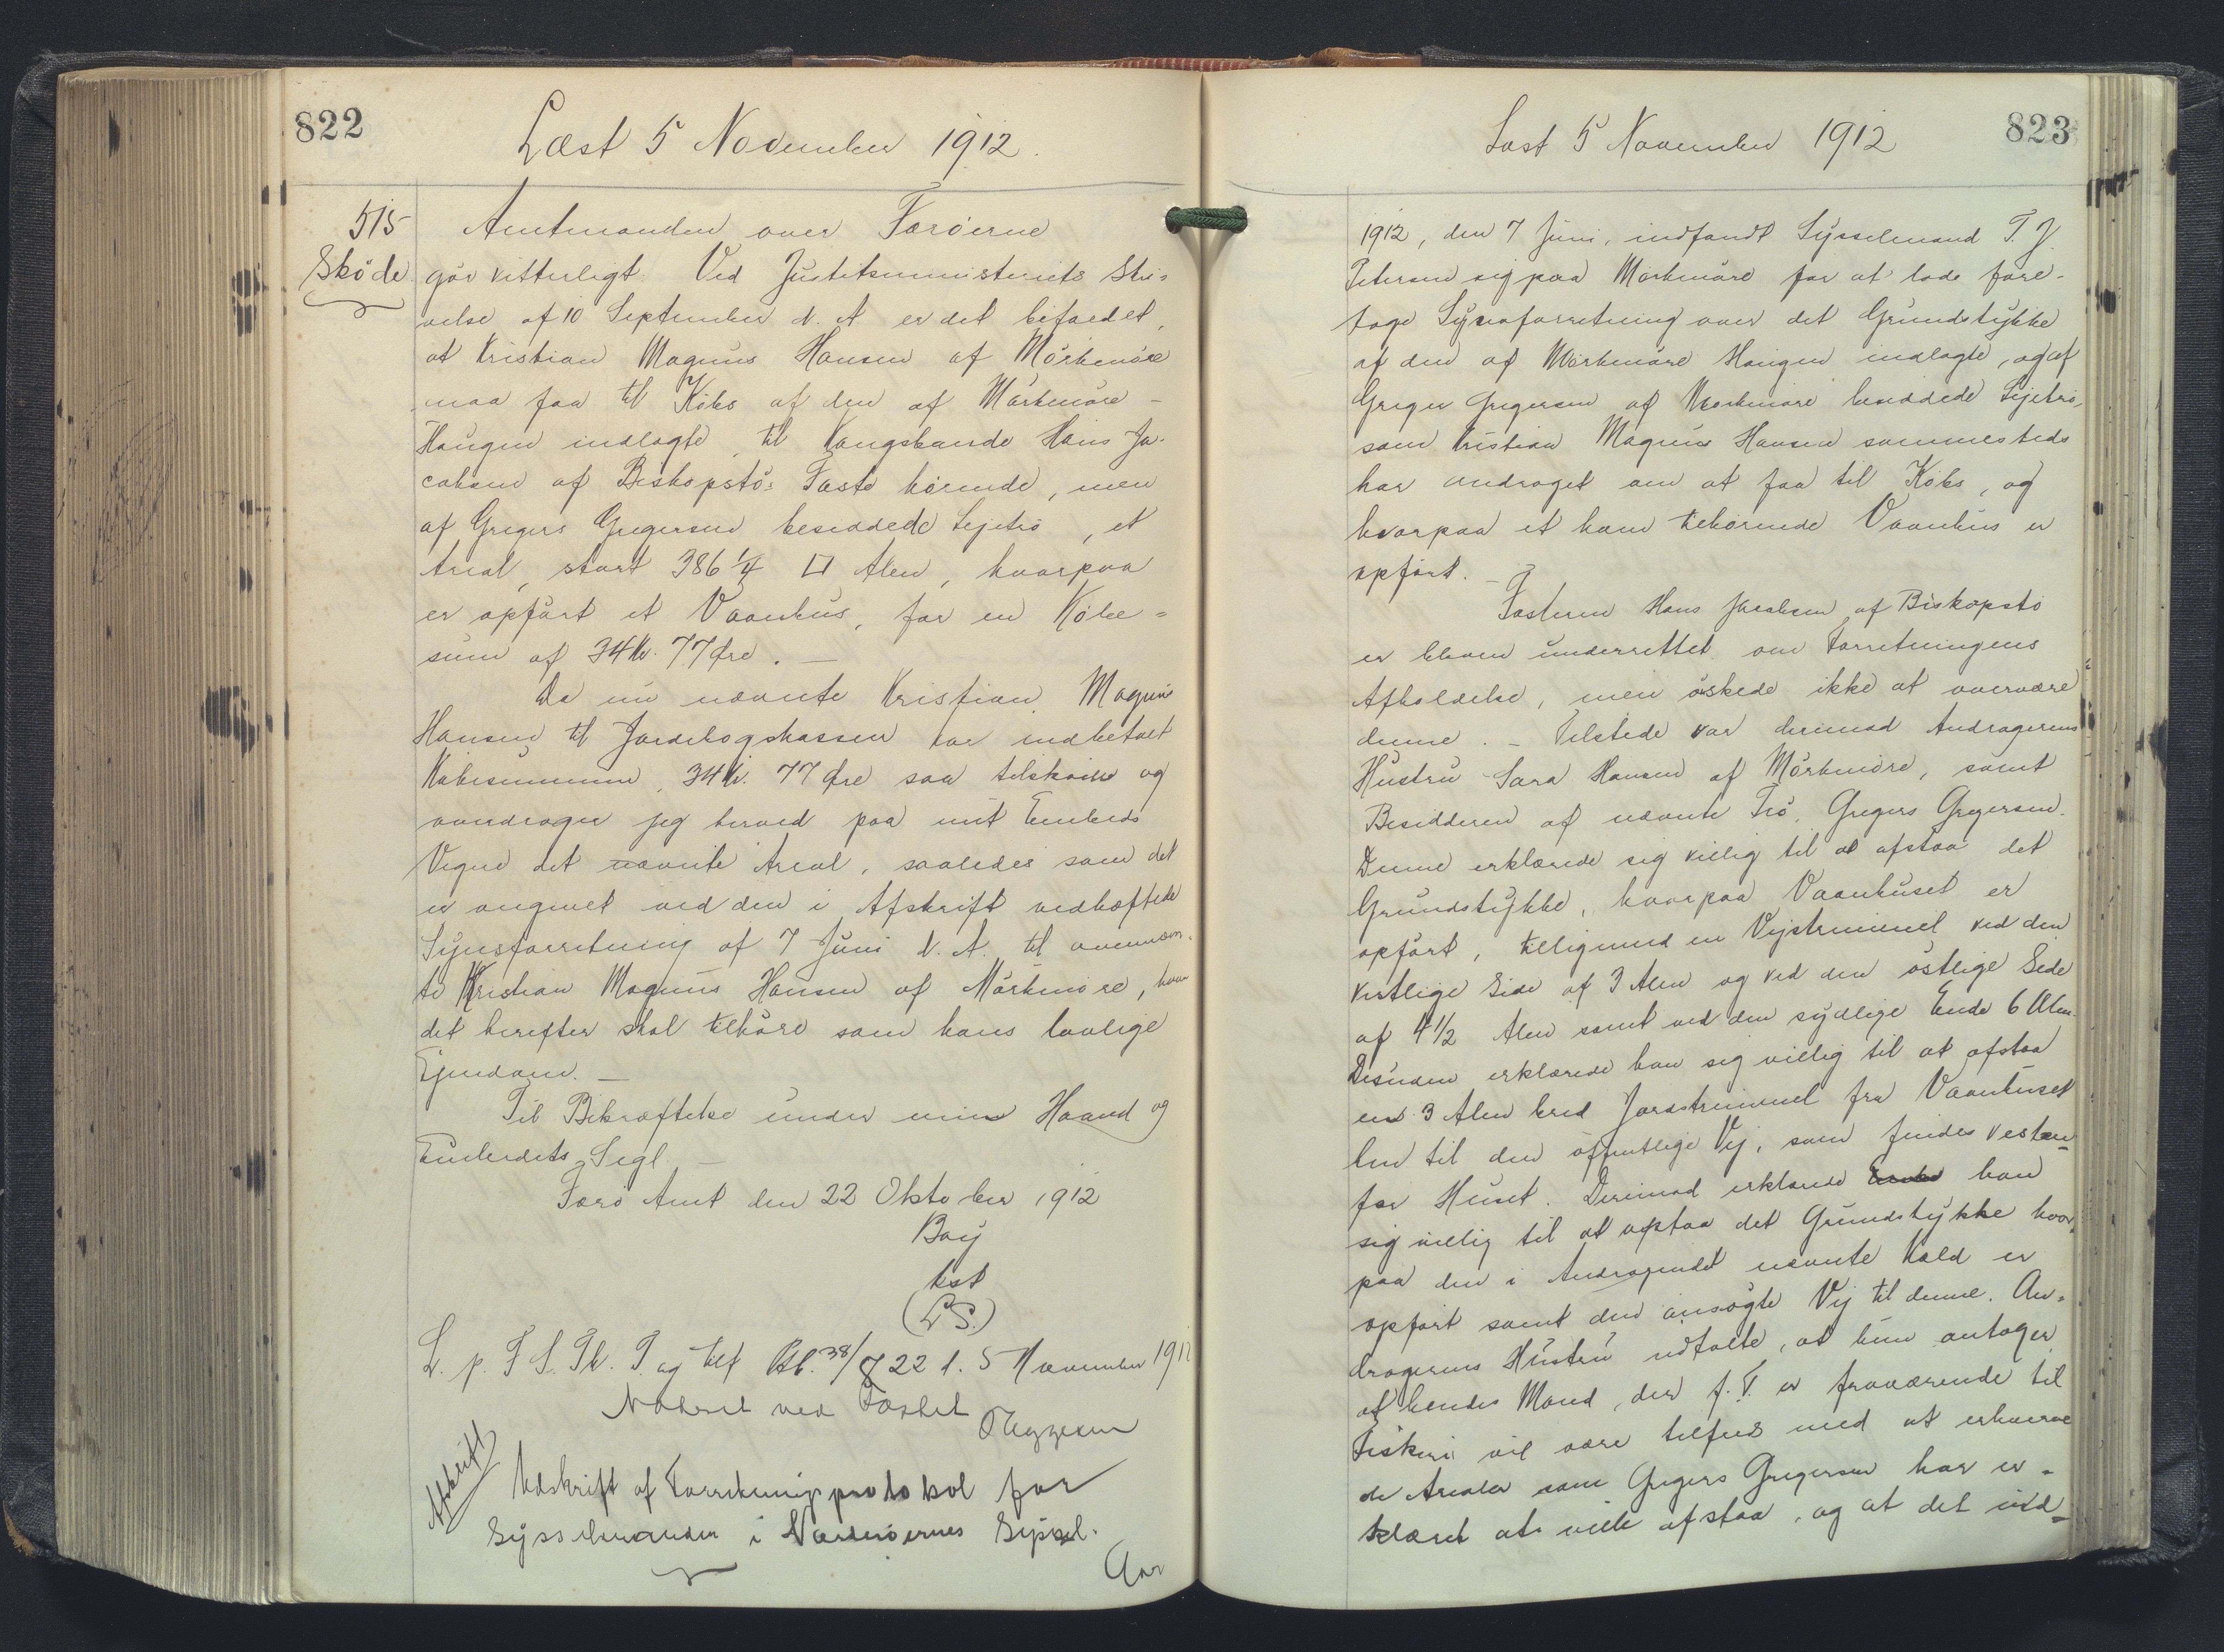 822
Læst 5 November 1912.
515
Skøde
Amtmanden over Færøerne
gör vitterligt: Ved Justitsministeriets Skri-
velse af 10 September d. A er det bifaldet,
at Kristian Magnus Hansen af Mörkmöre
maa faa til Købs af den af Mörkmöre -
Haugen indlagte, til Kongsbonde Hans Ja-
cobsens af Biskopstö: Fæste hörende, men
af Gregers Gregersen besiddede Lejetrö, et
Areal, stort 386 1/4 □ Alen, hvorpaa
er opfört et Vaanhus, for en Købe=
sum af 34 Kr. 77 Øre. —
Da nu nævnte Kristian Magnus
Hansen til Jordebogskassen har indbetalt
Købesummen, 34 Kr. 77 Øre saa tilsköder og
overdrager jeg herved paa mit Embeds
Vegne det nævnte Areal, saaledes som det
er angivet ved den i Afskrift vedhæftede
Synsforretning af 7 Juni d. A. til ovennævn-
te Kristian Magnus Hansen af Mörkmöre, hvem
det herefter skal tilhöre som hans lovlige
Ejendom. —
Til Bekræftelse under min Haand og
Embedets Segl. —
Færö Amt den 22 Oktober 1912
Bay
kst
(L.S.)
L. p. F. S. Th. T. og tilf Bb. 38/722 d. 5 November 1912
Noteret ved Fæstet
Afskrift
Udskrift af Forretningsprotokol for
Sysselmanden i Norderöernes Syssel.
Aar
Læst 5 November 1912
823
1912, den 7 Juni, indfandt Sysselmand T. J.
Petersen sig paa Mörkmöre for at lade fore-
tage Synsforretning over det Grundstykke
af den af Mörkmöre Haugen indlagte, og af
Gregers Gregersen af Mörkmöre besiddede Lejetrö,
som Kristian Magnus Hansen sammesteds
har andraget om at faa til Købs, og
hvorpaa et ham tilhörende Vaanhus er
opfört. —
Fæsteren Hans Jacobsen af Biskopstö
er bleven underrettet om Forretningens
Afholdelse, men öskede ikke at overvære
denne. — Tilstede var derimod Andragerens
Hustru Sara Hansen af Mörkmöre, samt
Besidderen af nævnte Trö, Gregers Gregersen.
Denne erklærede sig villig til at afstaa det
Grundstykke, hvorpaa Vaanhuset er
opfört, tilligemed en Vejstrimmel ved den
vestlige Side af 3 Alen og ved den östlige Side
af 4 1/2 Alen samt ved den sydlige Ende 6 Alen.
Desuden erklærede han sig villig til at afstaa
en 3 Alen bred Jordstrimmel fra Vaanhuset
hen til den offentlige Vej, som findes vesten-
for Huset. Derimod erklærede han
sig villig til at afstaa det Grundstykke hvor-
paa den i Andragendet nævnte Kald er
opfört samt den ansøgte Vej til denne. An-
dragerens Hustru udtalte, at hun antager,
at hendes Mand, der f. T. er fraværende til
Fiskeri vil være tilfreds med at erhverve
de Arealer som Gregers Gregersen har er-
klæret at ville afstaa, og at det ind-